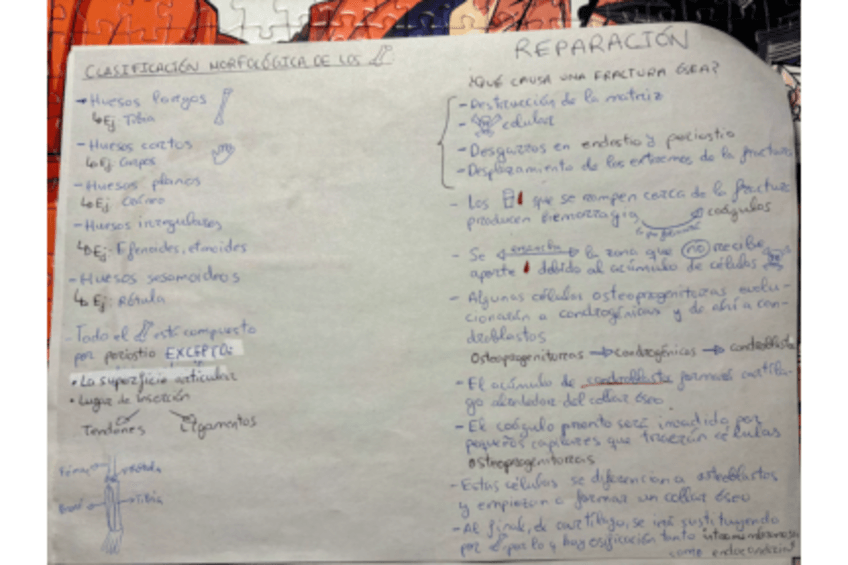 CLASIFICACIÓN MORFOLÓGICA DE LOS
→ Huesos largos
↳ Ej: Tibia
- Huesos cortos
↳ Ej: Carpos
- Huesos planos
↳ Ej: Cráneo
- Huesos irregulares
↳ Ej: Efenoides, etmoides
- Huesos sesamoideos
↳ Ej: Rótula
- Todo el está compuesto
por periostio EXCEPTO:
• La superficie articular
• Lugar de inserción
Tendones Ligamentos
Fémur Rótula
Tibia
REPARACIÓN
¿QUÉ CAUSA UNA FRACTURA ÓSEA?
- Destrucción de la matriz
- celular
- Desgarros en endostio y periostio
- Desplazamiento de los extremos de la fractura
- Los que se rompen cerca de la fractura
producen hemorragia coágulos
- Se ensancha la zona que no recibe
aporte debido al acúmulo de células
- Algunas células osteoprogenitoras evolu-
cionarán a condrogénicas y de ahí a con-
droblastos
Osteoprogenitoras → condrogénicas → condroblastos
- El acúmulo de condroblastos formará cartíla-
go alrededor del collar óseo
- El coágulo pronto será invadido por
pequeños capilares que traerán células
osteoprogenitoras
- Estas células se diferencian a osteoblastos
y empiezan a formar un collar óseo
- Al final, el cartílago, se irá sustituyendo
por y hay osificación tanto intramembranosa
como endocondral